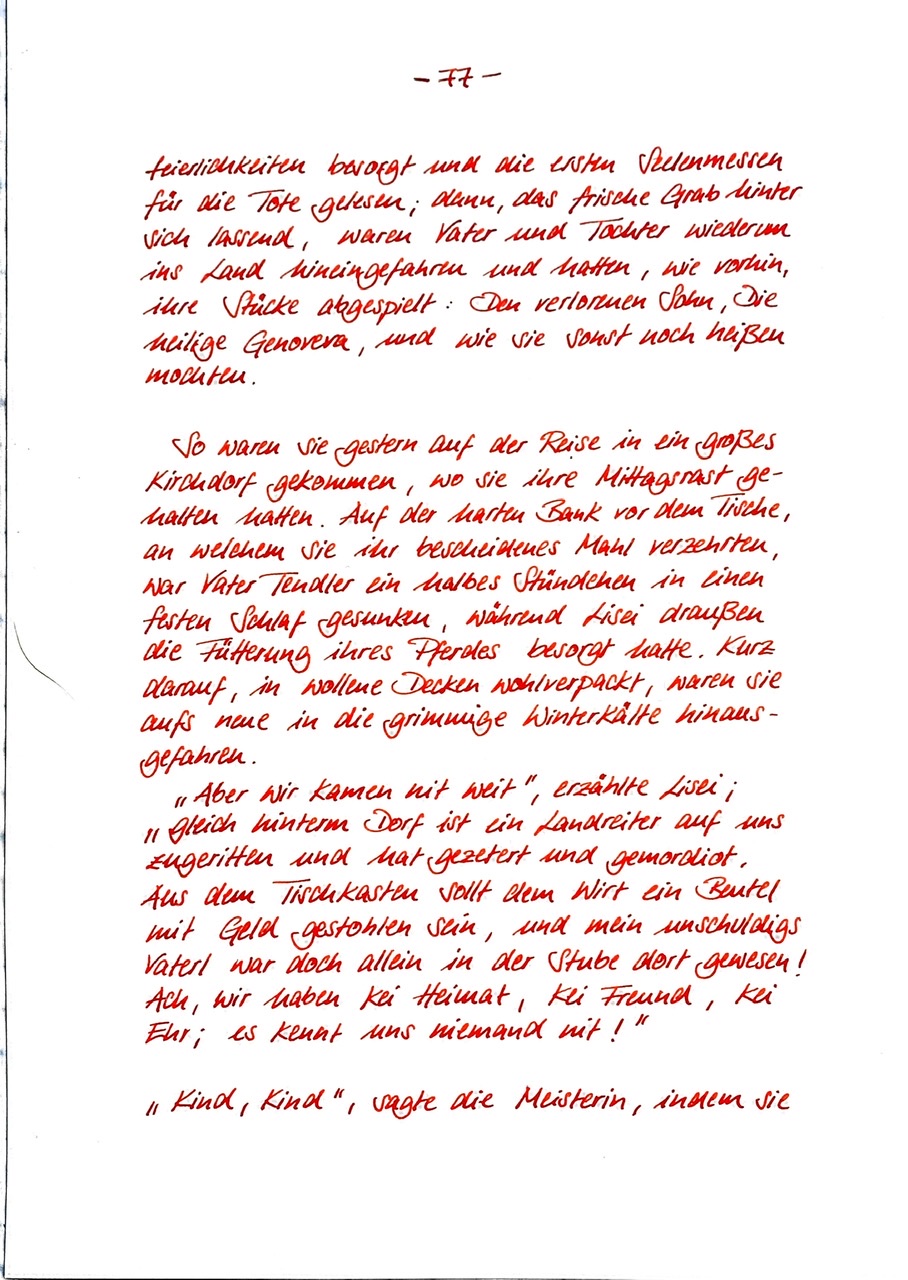 – 77 –
feierlichkeiten besorgt und die ersten Seelenmessen
für die Tote gelesen; dann, das frische Grab hinter
sich lassend, waren Vater und Tochter wiederum
ins Land hineingefahren und hatten, wie vorhin,
ihre Stücke abgespielt: Den verlorenen Sohn, Die
heilige Genoveva, und wie sie sonst noch heißen
mochten.
So waren sie gestern auf der Reise in ein großes
Kirchdorf gekommen, wo sie ihre Mittagsrast ge-
halten hatten. Auf der harten Bank vor dem Tische,
an welchem sie ihr bescheidenes Mahl verzehrten,
war Vater Tendler ein halbes Stündchen in einen
festen Schlaf gesunken, während Lisei draußen
die Fütterung ihres Pferdes besorgt hatte. Kurz
darauf, in wollene Decken wohlverpackt, waren sie
aufs neue in die grimmige Winterkälte hinaus-
gefahren.
„Aber wir kamen nit weit", erzählte Lisei;
„gleich hinterm Dorf ist ein Landreiter auf uns
zugeritten und hat gezetert und gemordiot.
Aus dem Tischkasten sollt dem Wirt ein Beutel
mit Geld gestohlen sein, und mein unschuldigs
Vaterl war doch allein in der Stube dort gewesen!
Ach, wir haben kei Heimat, kei Freund, kei
Ehr; es kennt uns niemand nit!"
„Kind, Kind", sagte die Meisterin, indem sie